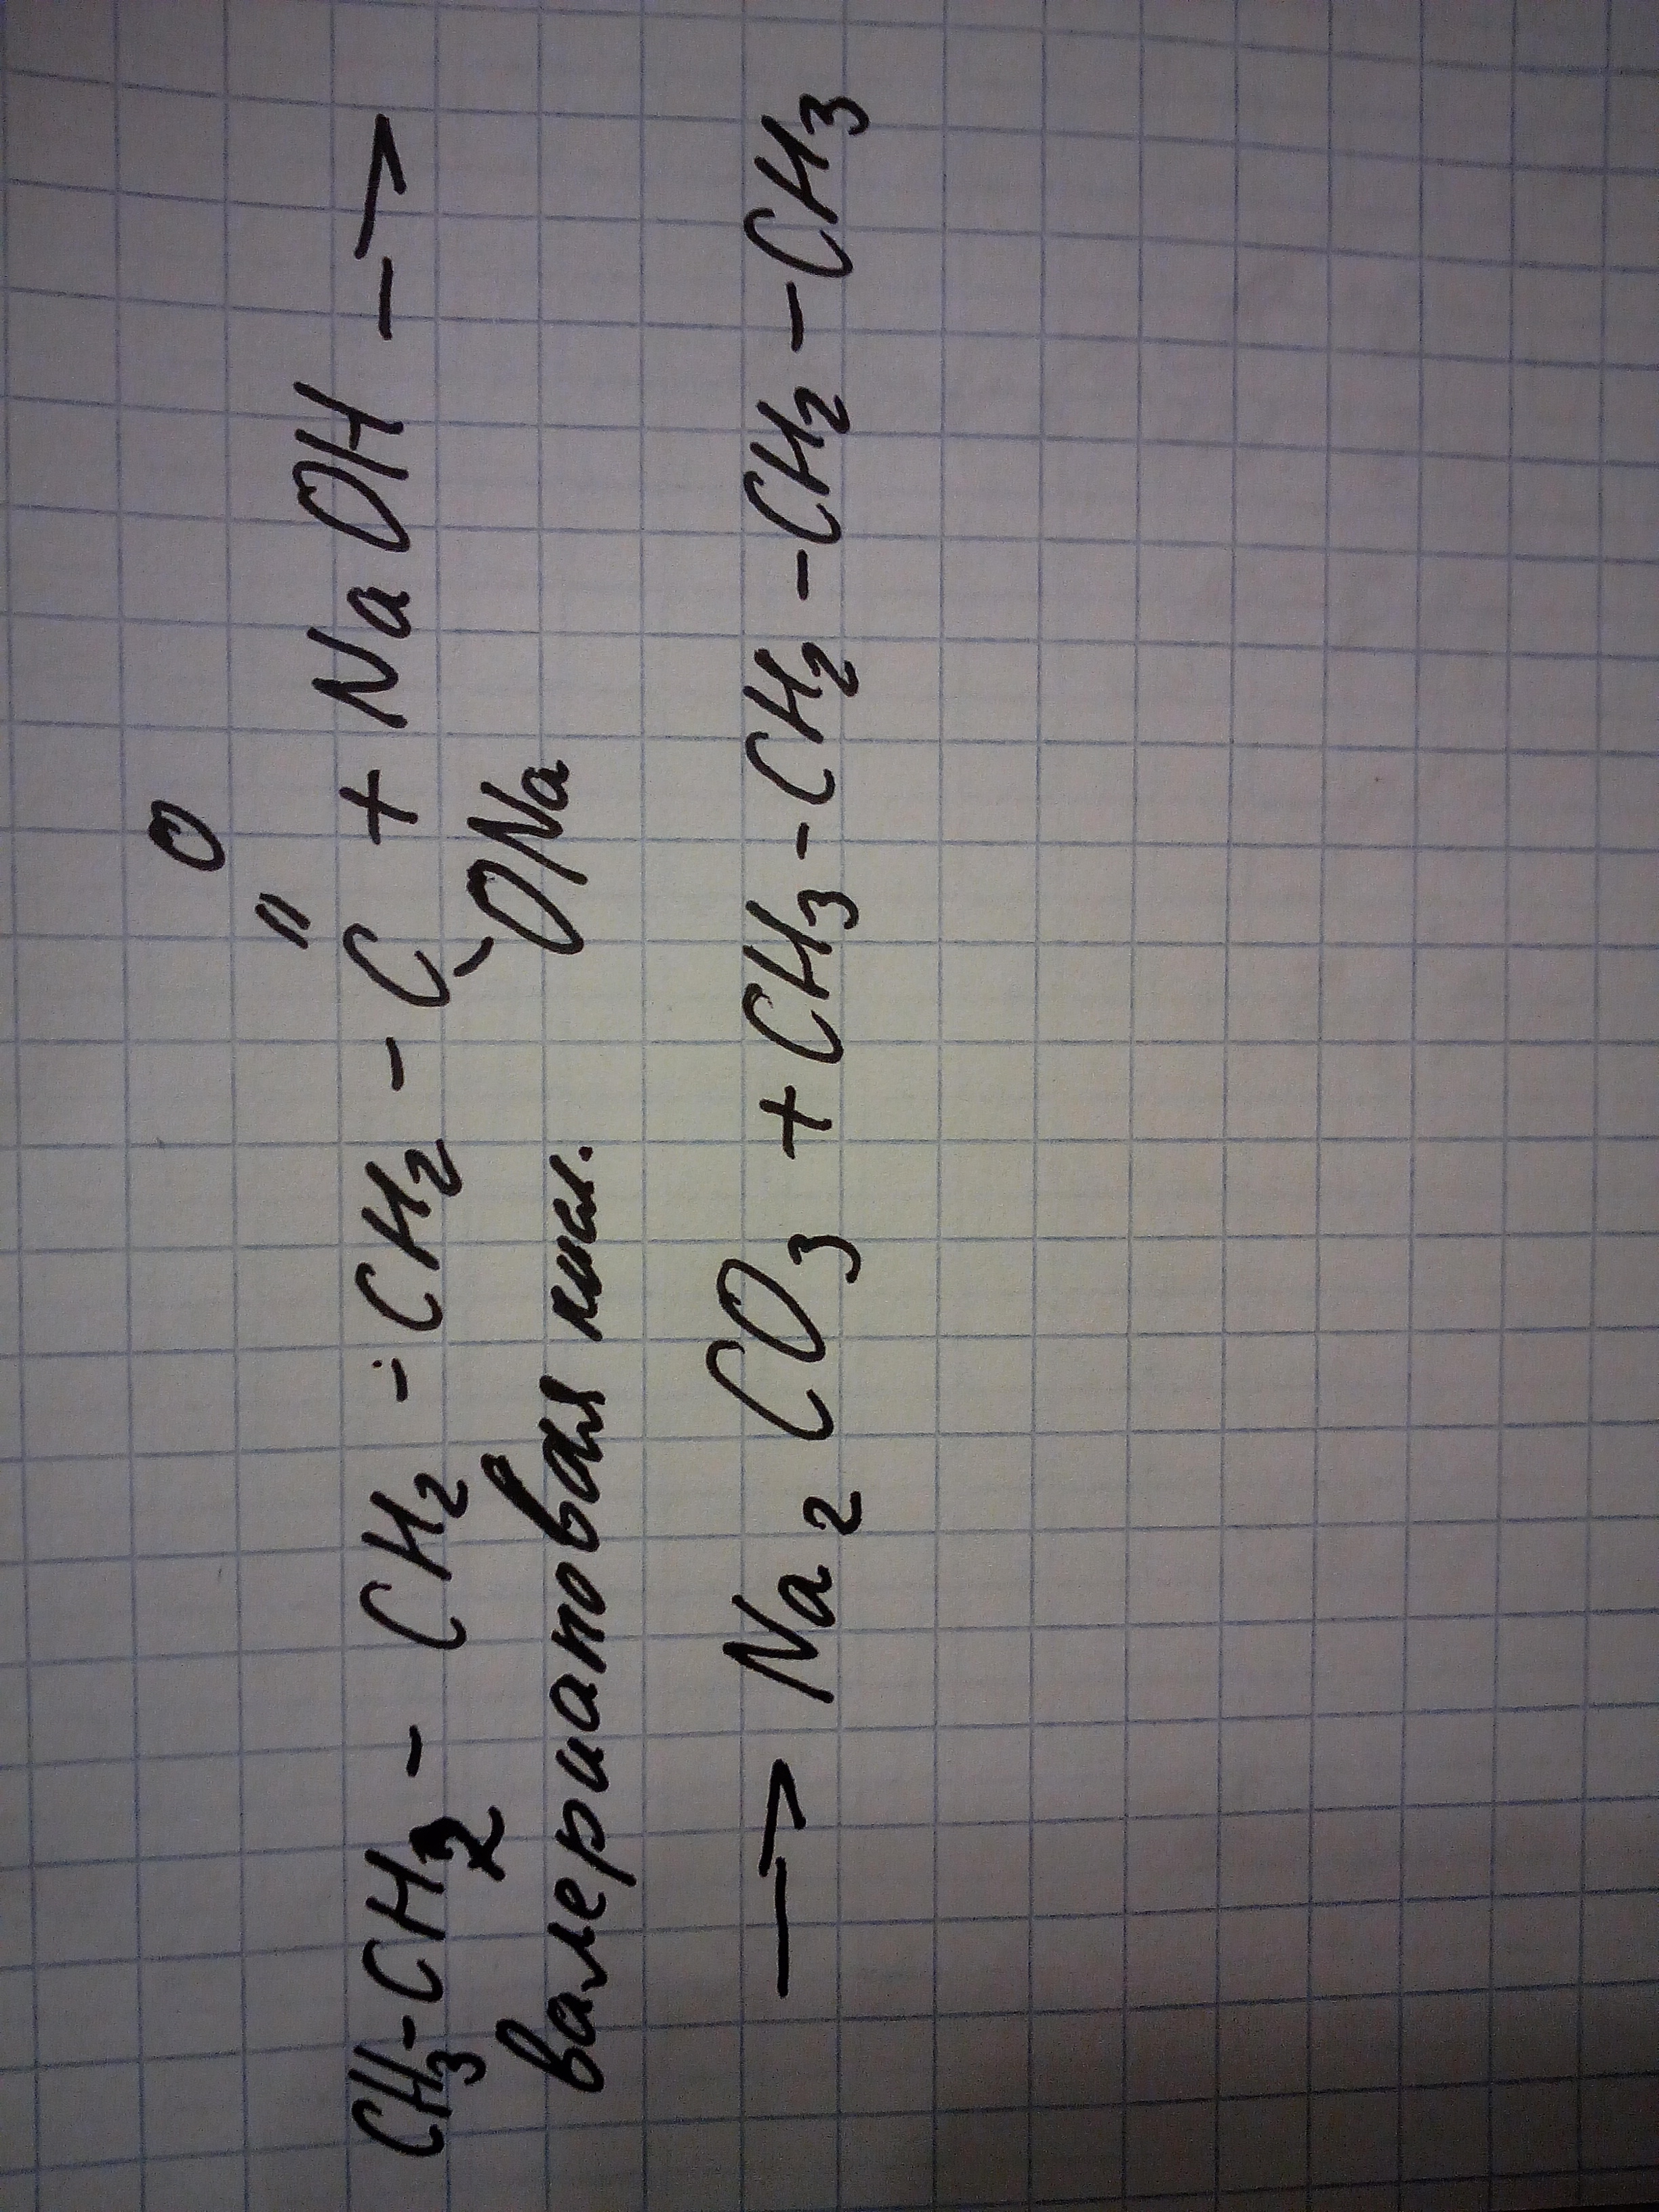 O
//
CH3-CH2 - CH2 - CH2 - C + NaOH -->
\ONa
валериановая кисл.
--> Na2CO3 + CH3-CH2-CH2-CH3